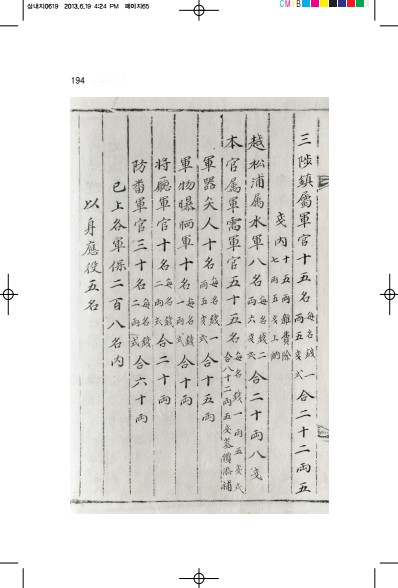 삼내지0619 2013.6.19 4:24 PM 페이지65
CM B
194
三陟鎮屬軍官十五名 每名錢一兩五戔式 合二十二兩五
戔內 十五兩雜費除 七兩五戔上納
越松浦屬水軍八名 每名錢二兩六戔式 合二十兩八戔
本官屬軍需軍官五十五名 每名錢一兩五戔式 合八十二兩五戔
軍器矢人十名 每名錢一兩五戔式 合十五兩
軍物曝晒軍十名 每名錢一兩式 合十兩
將廳軍官十名 每名錢二兩式 合二十兩
防番軍官三十名 每名錢二兩式 合六十兩
已上各軍保二百八名內
以身應役五名